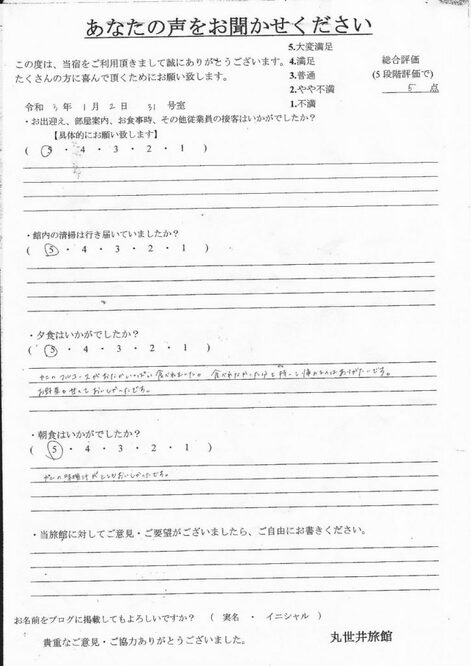 あなたの声をお聞かせください
この度は、当宿をご利用頂きまして誠にありがとうございます。
たくさんの方に喜んで頂くためにお願い致します。
5.大変満足
4.満足
3.普通
2.やや不満
1.不満
総合評価
(5段階評価で)
5 点
令和 3 年 1 月 2 日 31 号室
・お出迎え、部屋案内、お食事時、その他従業員の接客はいかがでしたか?
【具体的にお願い致します】
( 5 ・ 4 ・ 3 ・ 2 ・ 1 )
・館内の清掃は行き届いていましたか?
( 5 ・ 4 ・ 3 ・ 2 ・ 1 )
・夕食はいかがでしたか?
( 5 ・ 4 ・ 3 ・ 2 ・ 1 )
カニのフルコースがおなかいっぱい食べれました。
お野菜も甘くておいしかったです。
・朝食はいかがでしたか?
( 5 ・ 4 ・ 3 ・ 2 ・ 1 )
カニの味噌汁がとてもおいしかったです。
・当旅館に対してご意見・ご要望がございましたら、ご自由にお書きください。
お名前をブログに掲載してもよろしいですか? ( 実名 ・ イニシャル )
貴重なご意見・ご協力ありがとうございました。
丸世井旅館